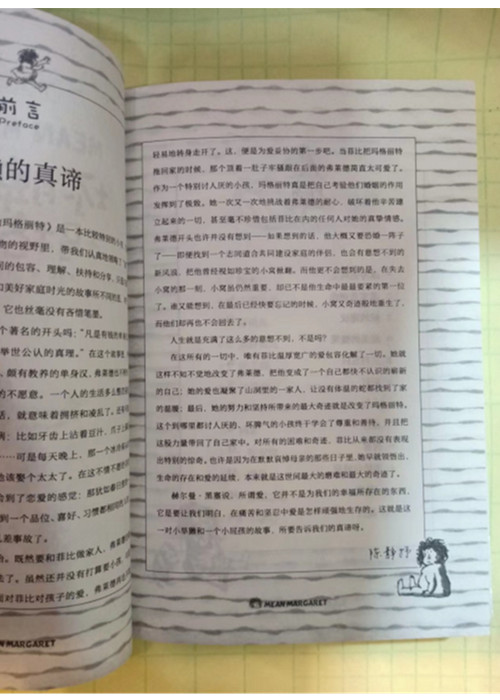 前言
Preface
的真谛
玛格丽特》是一本比较特别的小
物的视野里，带我们认真地领略了
同的包容、理解、扶持和分享，只
和美好家庭时光的故事所不同的是，
它也丝毫没有吝惜笔墨。
个著名的开头吗：“凡是有钱的单
举世公认的真理。”在这个故事里
颇有教养的单身汉，弗莱德也不例
的不愿意。一个人的生活多么整
活，就意味着拥挤和凌乱了。还有
病：比如牙齿上沾着豆汁、爪子上
……可是每天晚上，那一个冰冷
他该娶个太太了。在这不情不愿
会到了恋爱的感觉：那犹如春日
到一个品位、喜好、习惯都相同
么差事故了。
台。既然要和菲比做家人，弗莱德
法了。虽然还并没有打算要小孩，
而对菲比对孩子的爱，弗莱德
轻易地转身走开了。这，便是为爱妥协的第一步吧。当菲比把玛格丽特
拖回家的时候，那个顶着一肚子牢骚跟在后面的弗莱德简直太可爱了。
作为一个特别讨人厌的小孩，玛格丽特真是把自己考验他们婚姻的作用
发挥到了极致。她一次又一次地挑战着弗莱德的耐心、破坏着他辛苦建
立起来的一切，甚至毫不珍惜包括菲比在内的任何人对她的真挚情感。
弗莱德开头也许并没有想到——如果想到的话，他大概又要恐婚一阵子
了——即便找到一个志同道合共同建设家庭的伴侣，也会有意想不到的
新风浪，把他曾经视如珍宝的小窝掀翻。而他更不会想到的是，在失去
小窝的那一刻，小窝虽仍然重要，却已不是他生命中最最要紧的第一位
了。谁又能想到，在最后已经快要忘记的时候，小窝又奇迹般地重生了，
而他们却再也不会回去了。
人生就是充满了这么多的意想不到，不是吗？
在这所有的一切中，唯有菲比温厚宽广的爱包容化解了一切。她就
这样不知不觉地改变了弗莱德，把他变成了一个自己都快不认识的崭新
的自己；她的爱也凝聚了山洞里的一家人，让没有体温的蛇都找到了家
的温暖；最后，她的努力和坚持所带来的最大奇迹就是改变了玛格丽特。
这个到哪里都讨人厌的、坏脾气的小孩终于学会了尊重和善待，并且把
这股力量带回了自己家中。对所有的困难和奇迹，菲比从来都没有表现
出特别的惊奇。也许是因为在默默哀悼母亲的那些日子里，她早就领悟出，
生命的存在和爱的延续，本来就是这世间最大的磨难和最大的奇迹了。
赫尔曼·黑塞说，所谓爱，它并不是为我们的幸福所存在的东西，
它是要让我们明白，在痛苦和坚忍中爱是怎样顽强地生存的。这就是这
一对小旱獭和一个小屁孩的故事，所要告诉我们的真谛呀。
陈静抒
MEAN MARGARET
AN MARGARET